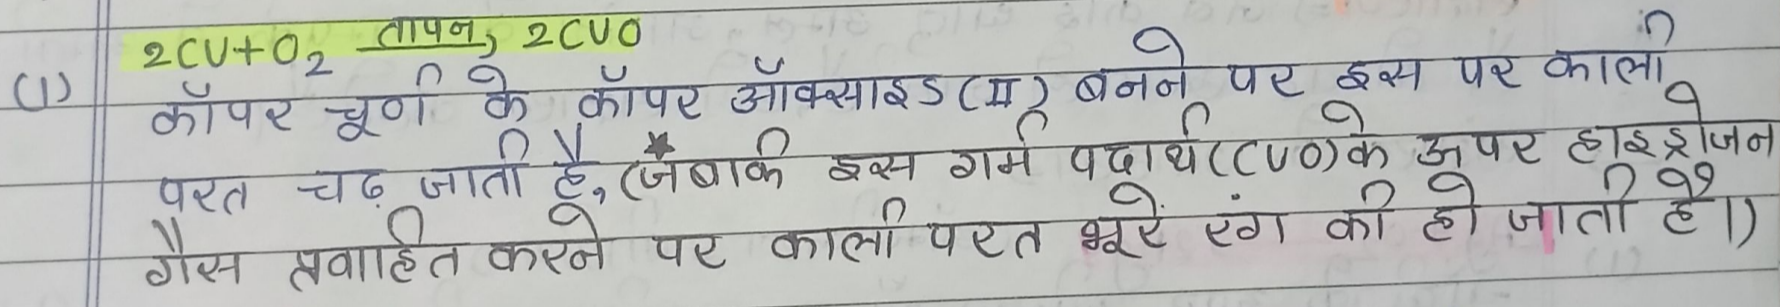 2CU+O₂ तापन→ 2CUO
(1) कॉपर चूर्ण के कॉपर ऑक्साइड (II) बनने पर इस पर काली
परत चढ़ जाती है, (जबकि इस गर्म पदार्थ (CUO) के ऊपर हाइड्रोजन
गैस प्रवाहित करने पर काली परत भूरे रंग की हो जाती है।)